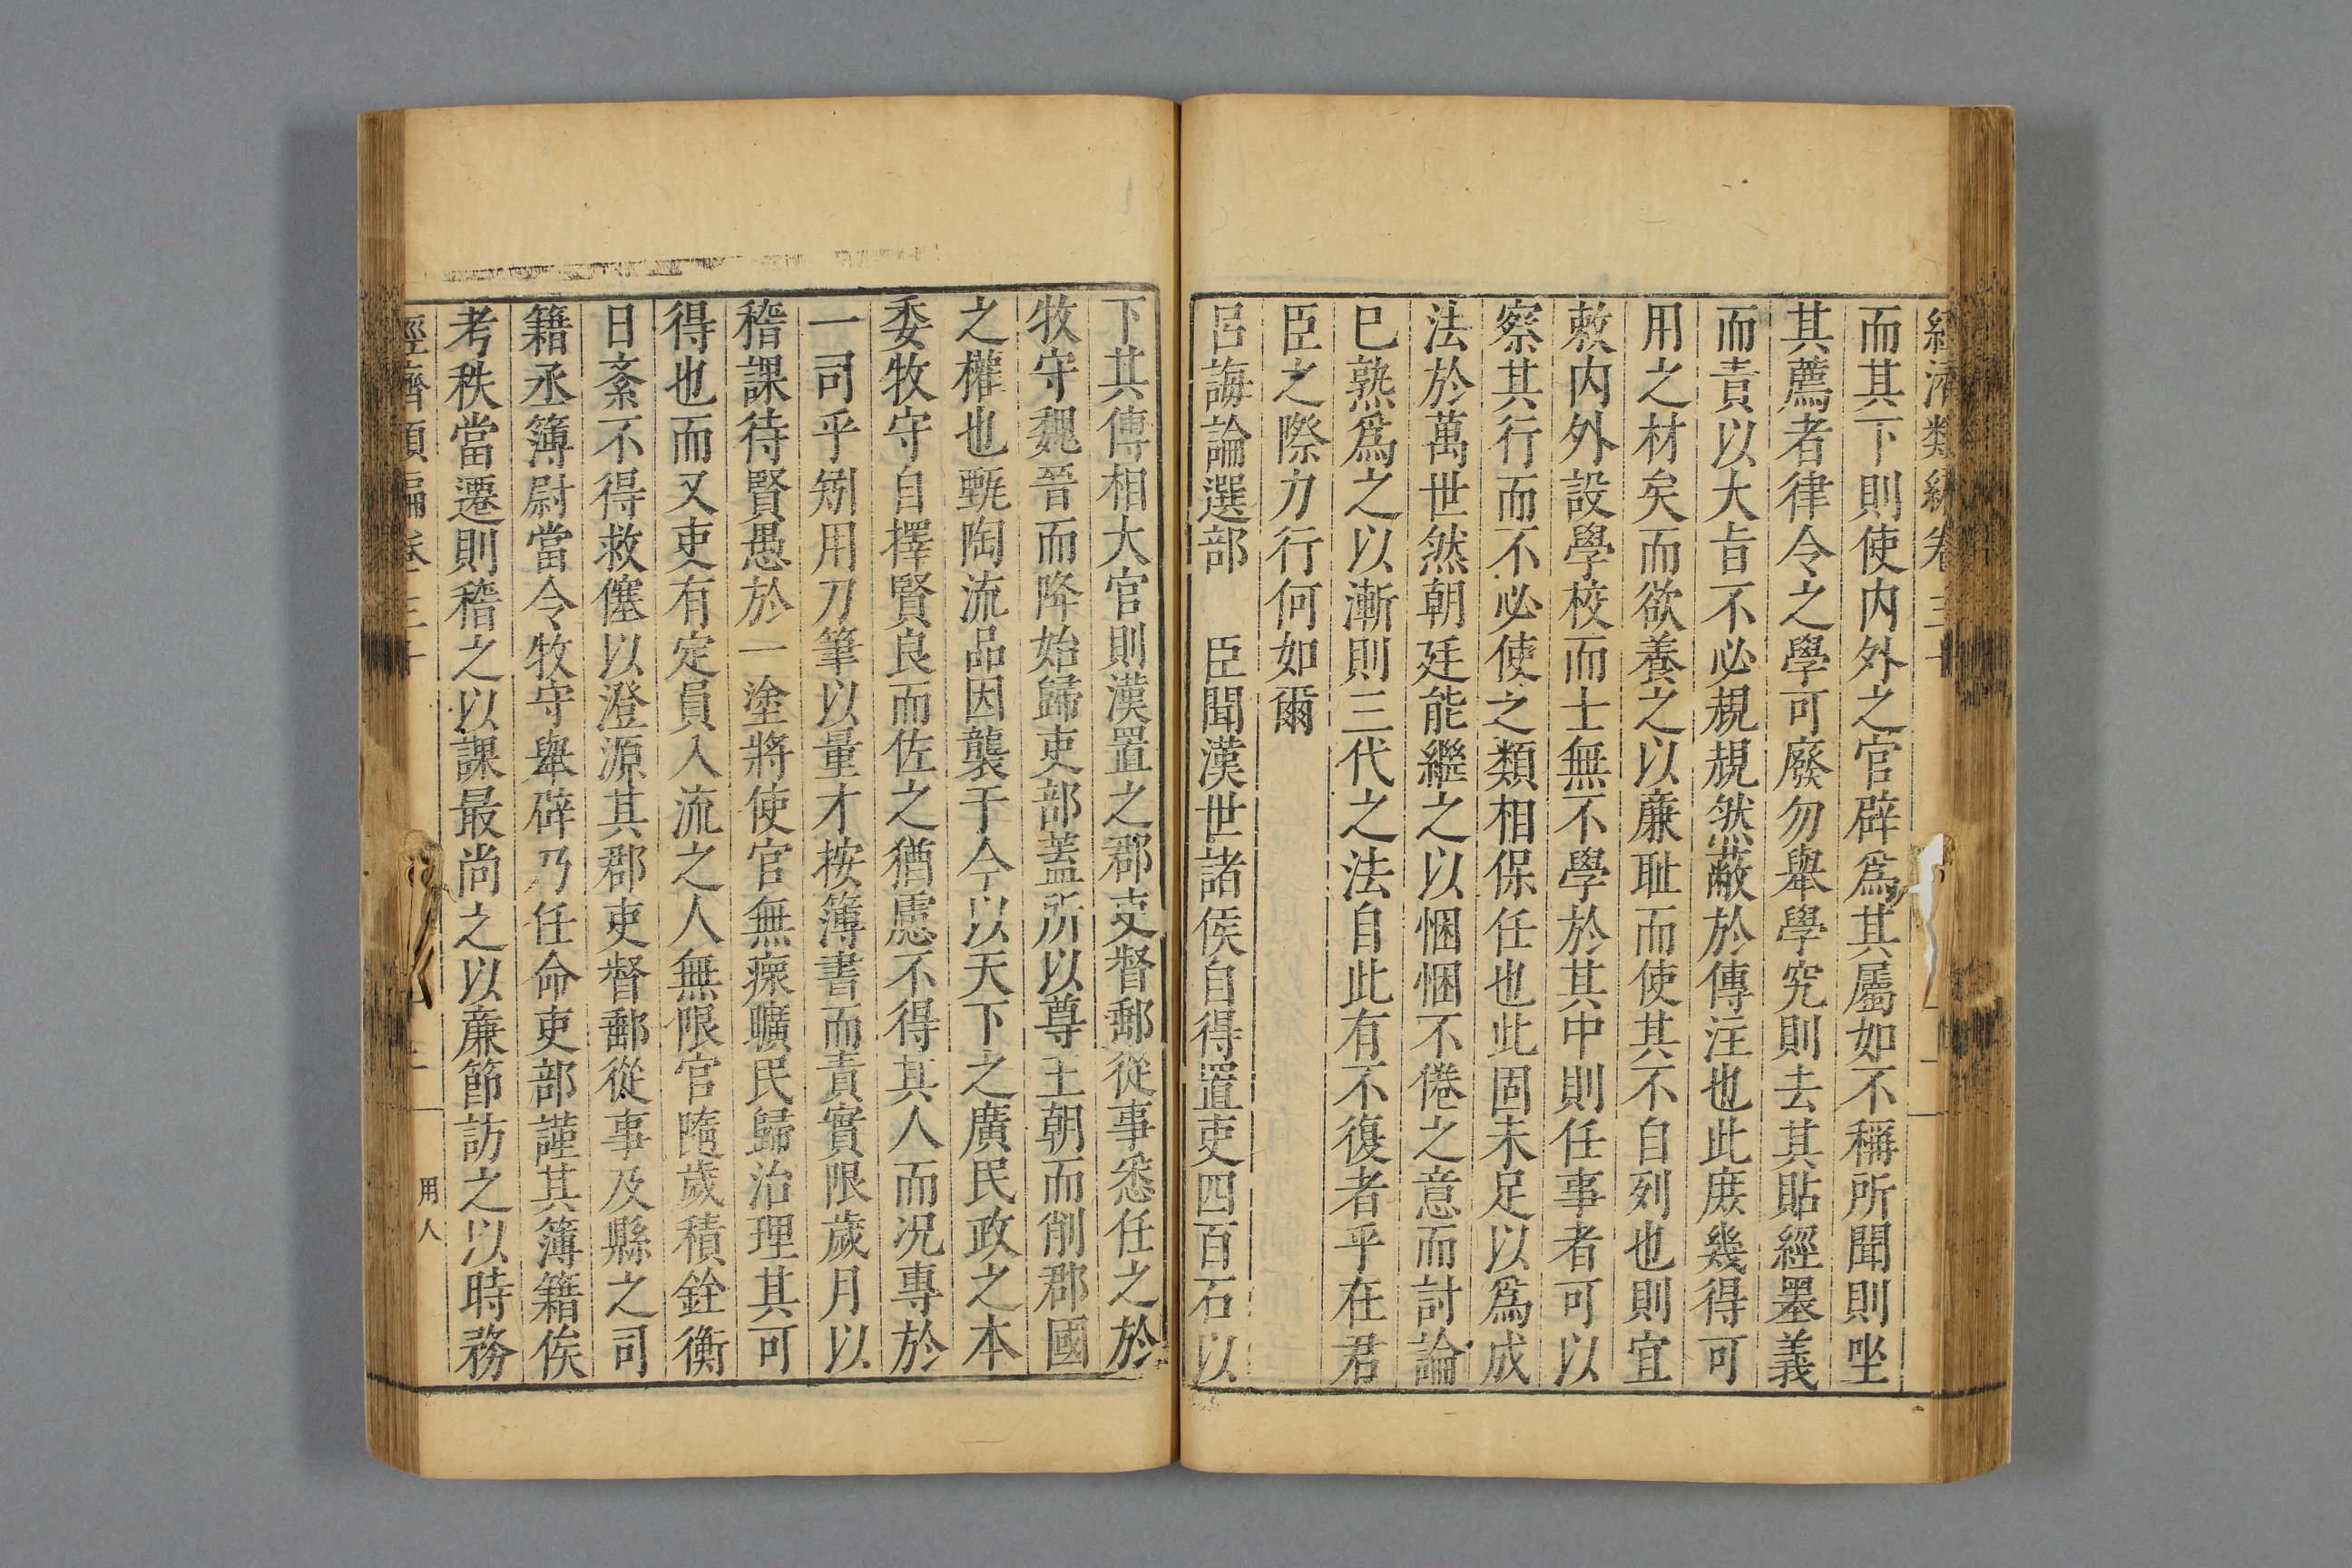 經濟類編卷三十
而其下則使内外之官辟爲其屬如不稱所聞則坐
其薦者律令之學可廢勿舉學究則去其貼經墨義
而責以大旨不必規規然蔽於傳注也此庶幾得可
用之材矣而欲養之以廉耻而使其不自列也則宜
敕内外設學校而士無不學於其中則任事者可以
察其行而不必使之類相保任也此固未足以爲成
法於萬世然朝廷能繼之以悃悃不倦之意而討論
已熟爲之以漸則三代之法自此有不復者乎在君
臣之際力行何如爾
呂誨論選部 臣聞漢世諸侯自得置吏四百石以
下其傳相大官則漢置之郡吏督郵從事悉任之於
牧守魏晉而降始歸吏部蓋所以尊王朝而削郡國
之權也甄陶流品因襲于今以天下之廣民政之本
委牧守自擇賢良而佐之猶慮不得其人而况專於
一司乎矧用刀筆以量才按簿書而責實限歲月以
稽課待賢愚於一塗將使官無瘝曠民歸治理其可
得也而又吏有定員入流之人無限官隨歲積銓衡
日紊不得救僬以澄源其郡吏督郵從事及縣之司
籍丞簿尉當令牧守舉辟乃任命吏部謹其簿籍俟
考秩當遷則稽之以課最尚之以廉節訪之以時務
經濟類編卷三十
用人